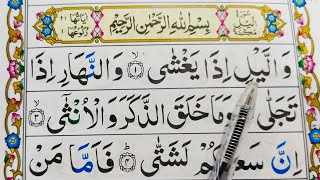 بِسْمِ اللهِ الرَّحْمٰنِ الرَّحِيْمِ
وَالَّيْلِ اِذَا يَغْشٰى ۙ۝۱ وَالنَّهَارِ اِذَا
تَجَلّٰى ۙ۝۲ وَمَا خَلَقَ الذَّكَرَ وَالْاُنْثٰٓى ۙ۝۳
اِنَّ سَعْيَكُمْ لَشَتّٰى ؕ۝۴ فَاَمَّا مَنْ